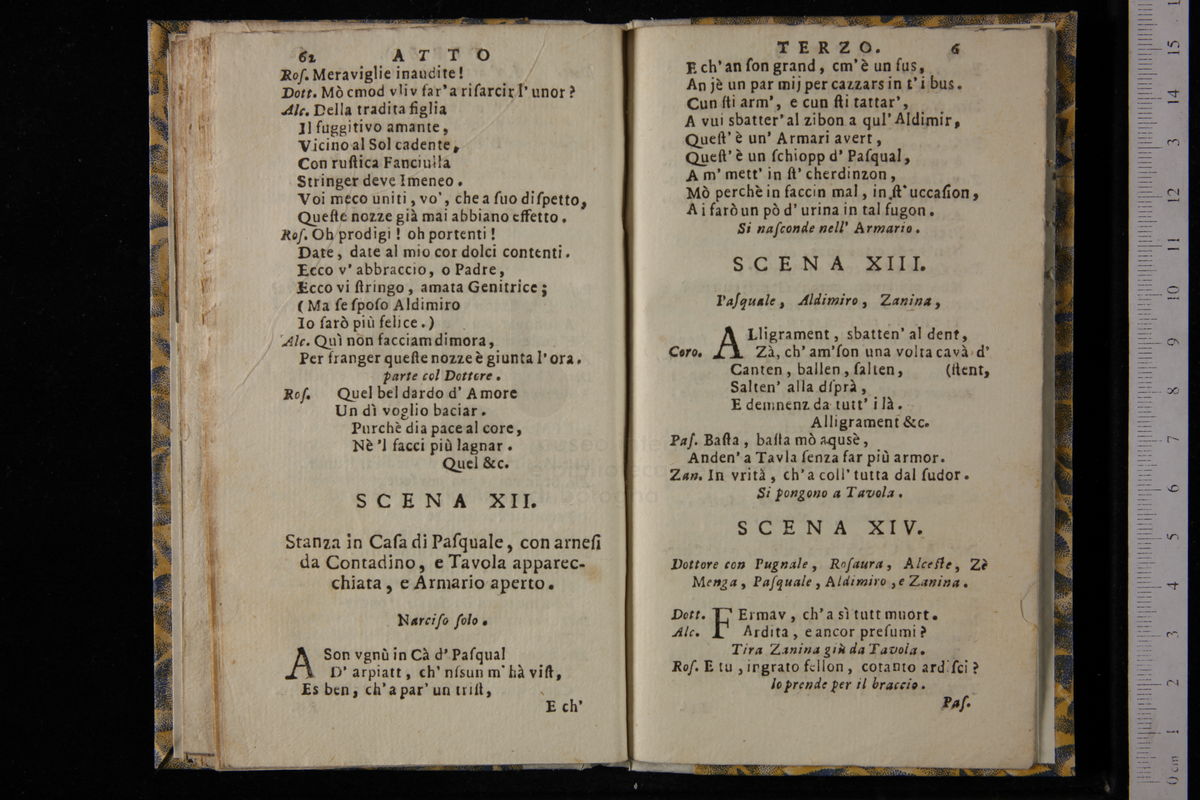 62 ATTO
Roſ. Meraviglie inaudite!
Dott. Mò cmod vliv far' a riſarcir l' unor?
Alc. Della tradita figlia
Il fuggitivo amante,
Vicino al Sol cadente,
Con ruſtica Fanciulla
Stringer deve Imeneo.
Voi meco uniti, vo', che a ſuo diſpetto,
Queſte nozze già mai abbiano effetto.
Roſ. Oh prodigi! oh portenti!
Date, date al mio cor dolci contenti.
Ecco v' abbraccio, o Padre,
Ecco vi ſtringo, amata Genitrice;
(Ma ſe ſpoſo Aldimiro
Io ſarò più felice.)
Alc. Quì non facciam dimora,
Per franger queſte nozze è giunta l' ora.
parte col Dottore.
Roſ. Quel bel dardo d' Amore
Un dì voglio baciar.
Purchè dia pace al core,
Nè 'l facci più lagnar.
Quel &c.
SCENA XII.
Stanza in Caſa di Paſquale, con arneſi
da Contadino, e Tavola apparec-
chiata, e Armario aperto.
Narciſo ſolo.
A Son vgnù in Cà d' Paſqual
D' arpiatt, ch' nſsun m' hà viſt,
Es ben, ch' a par' un triſt,
E ch'
TERZO. 6
E ch' an ſon grand, cm' è un fus,
An jè un par mij per cazzars in t' i bus.
Cun ſti arm', e cun ſti tattar',
A vui sbatter' al zibon a qul' Aldimir,
Queſt' è un' Armari avert,
Queſt' è un ſchiopp d' Paſqual,
A m' mett' in ſt' cherdinzon,
Mò perchè in faccin mal, in ſt' uccaſion,
A i farò un pò d' urina in tal fugon.
Si naſconde nell' Armario.
SCENA XIII.
Paſquale, Aldimiro, Zanina,
Coro. ALligrament, sbatten' al dent,
Zà, ch' am' ſon una volta cavà d'
Canten, ballen, ſalten, (ſtent,
Salten' alla dſprà,
E demnenz da tutt' i là.
Alligrament &c.
Paſ. Baſta, baſta mò aqusè,
Anden' a Tavla ſenza far più armor.
Zan. In vrità, ch' a coll' tutta dal ſudor.
Si pongono a Tavola.
SCENA XIV.
Dottore con Pugnale, Roſaura, Alceſte, Zè
Menga, Paſquale, Aldimiro, e Zanina.
Dott. FErmav, ch' a sì tutt muort.
Alc. Ardita, e ancor preſumi?
Tira Zanina giù da Tavola.
Roſ. E tu, ingrato fellon, cotanto ardiſci?
lo prende per il braccio.
Paſ.